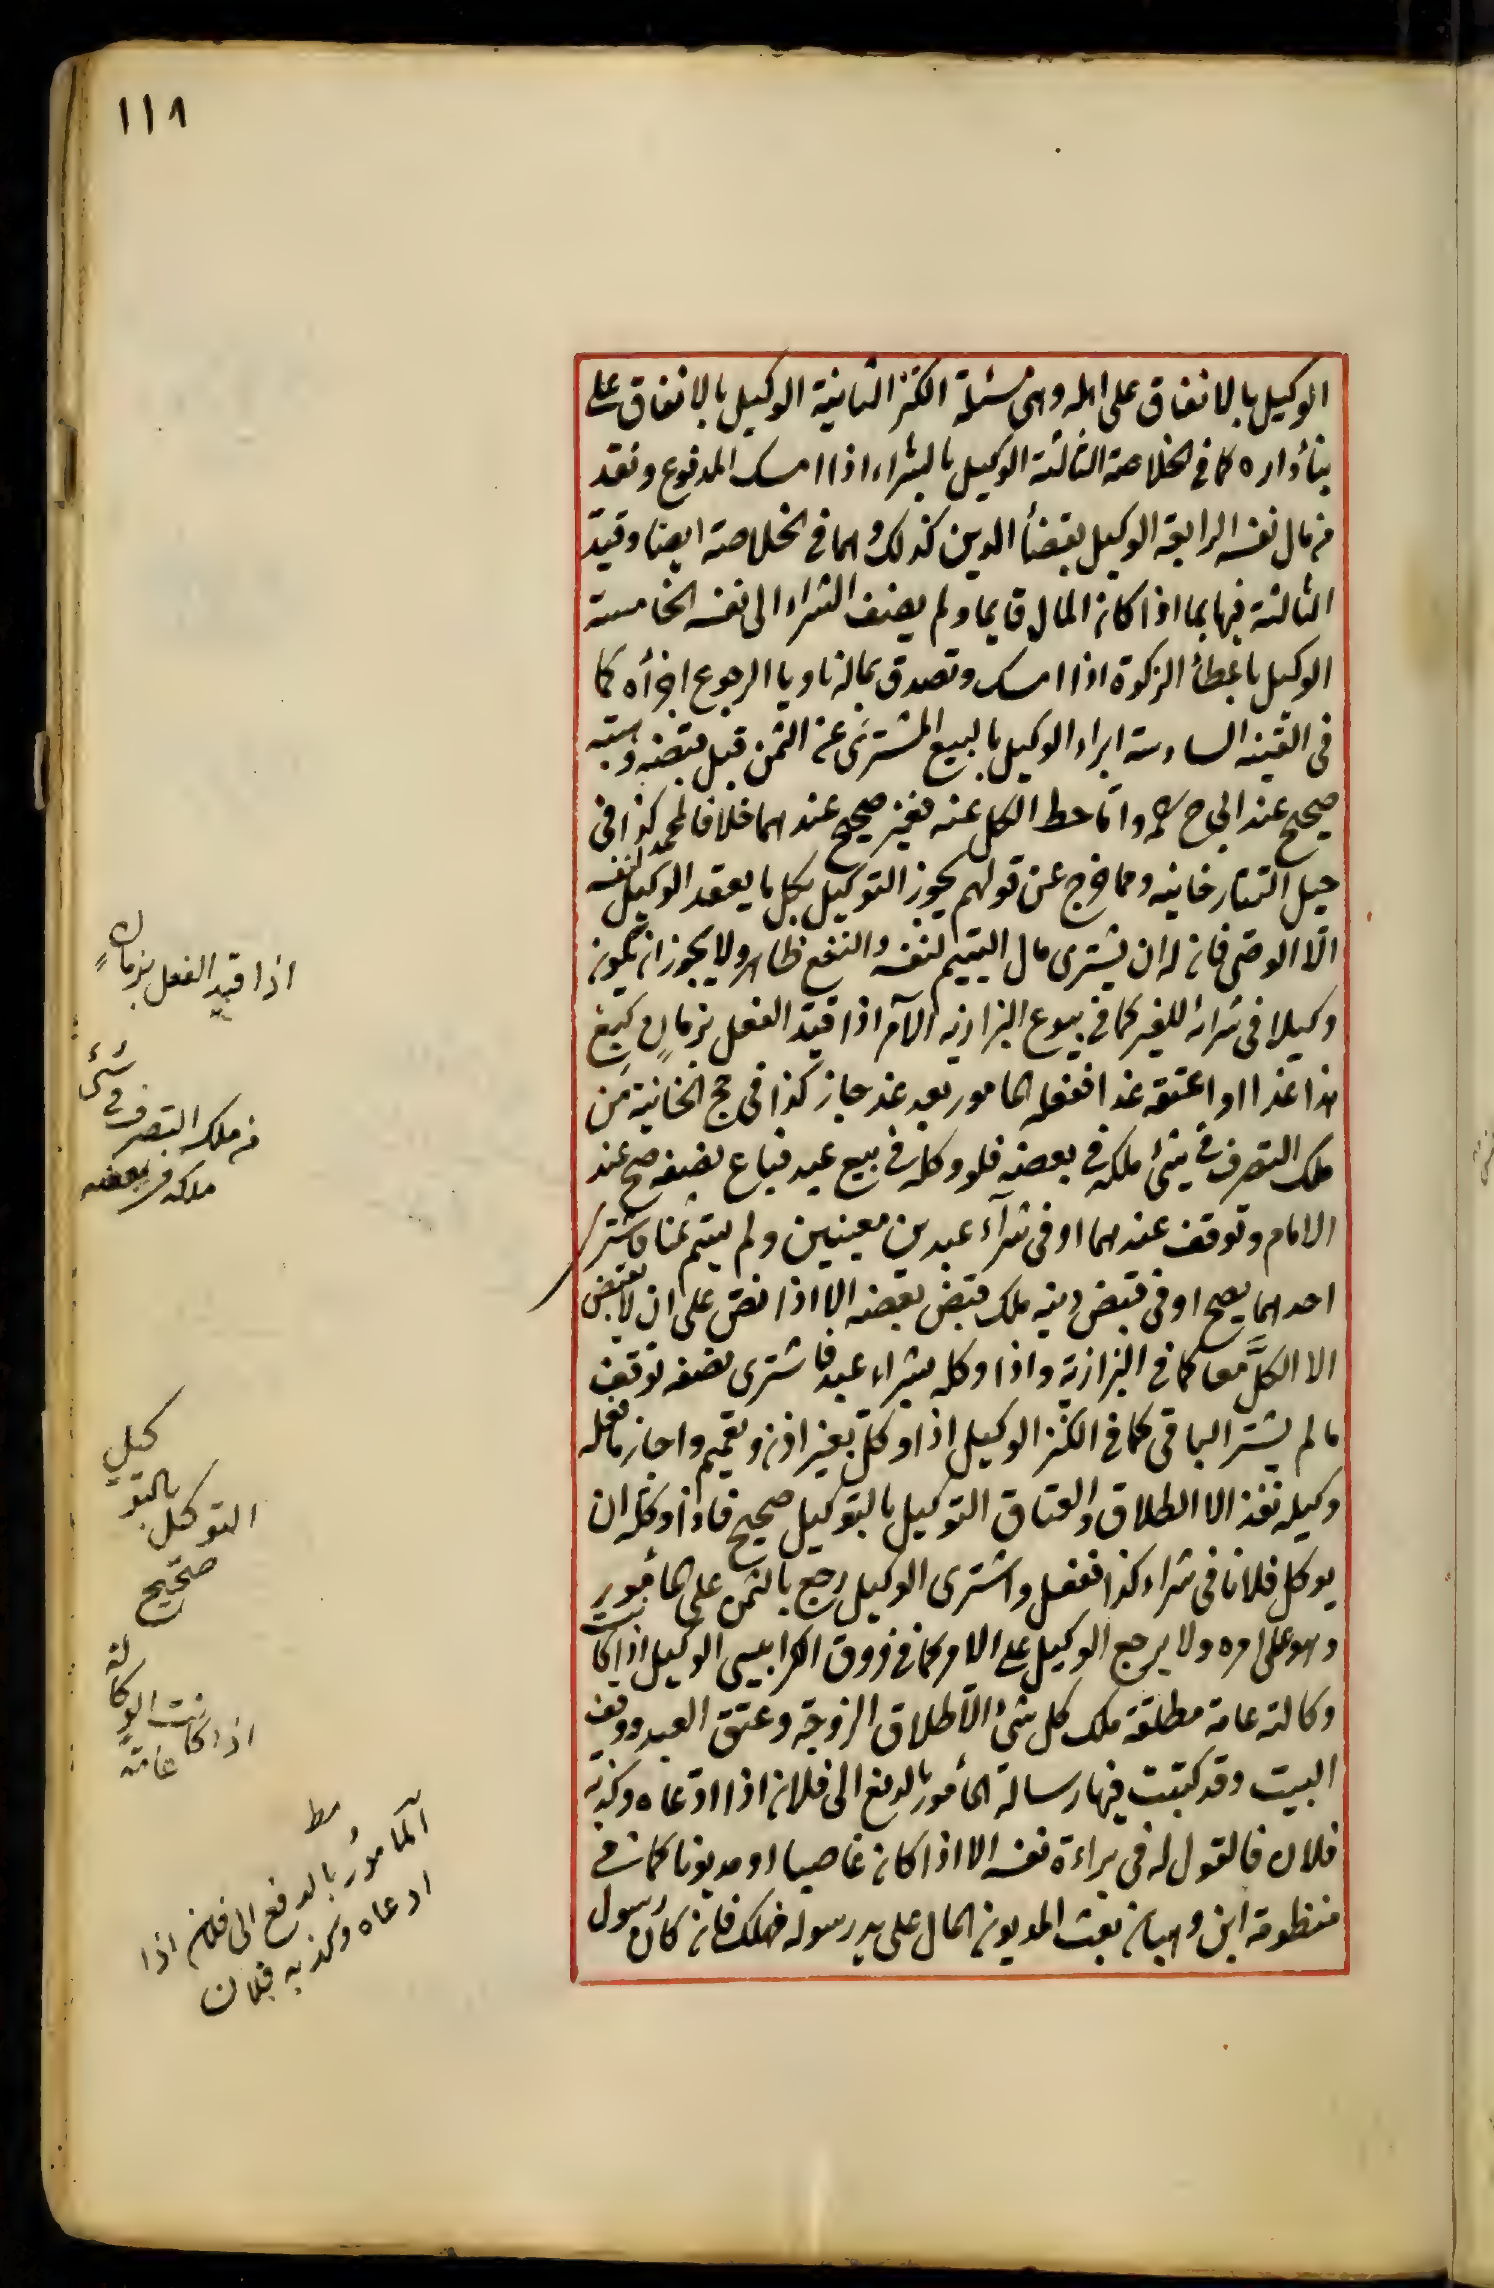 ١١٨
الوكيل بالانفاق على اهله وهى مسئلة الكنز الثانية الوكيل بالانفاق على
بنأ داره كما فى الخلاصة الثالثة الوكيل بالشراء اذا امسك المدفوع ونقد
من مال نفسه الرابعة الوكيل بقضأ الدين كذلك وهما فى الخلاصة ايضا وقيد
الثالثة فيها بما اذا كان المال قايما ولم يضف الشراء الى نفسه الخامسة
الوكيل باعطأ الزكوة اذا امسك وتصدق بماله ناويا الرجوع اجزأه كما
فى القنية السادسة ابراء الوكيل بالبيع المشترى عن الثمن قبل قبضه وهبته
صحيح عند ابى ح وم واما حط الكل عنه فغير صحيح عندهما خلافا لمحمد كذا فى
حيل التتارخانيه ومما خرج عن قولهم يجوز التوكيل بكل ما يعقد الوكيل لنفسه
الّا الوصّى فان له ان يشترى مال اليتيم لنفسه والنفع ظاهر ولا يجوز ان يكون
وكيلا فى شرائه للغير كما فى بيوع البزازيه الآمر اذا قيّد الفعل بزمانٍ كبِع
هذا غدا او اعتقه غدا ففعله المامور بعد غد جاز كذا فى حج الخانية مَن
ملك التصرف فى شئ ملكه فى بعضه فلو وكله فى بيع عبد فباع نصفه صح عند
الامام وتوقف عندهما او فى شرآء عبدين معينين ولم يسّم ثمنا فاشترى
احدهما يصح او فى قبض دينه ملك قبض بعضه الا اذا نصّ على ان لا يقبض
الا الكلَّ معا كما فى البزازية واذا وكله بشراء عبد فاشترى نصفه توقف
ما لم يشتر الباقى كما فى الكنز الوكيل اذا وكّل بغير اذن وتعميم واجاز ما فعله
وكيله نفذ الا الطلاق والعتاق التوكيل بالتوكيل صحيح فاذا وكله ان
يوكل فلانا فى شراء كذا ففعل واشترى الوكيل رجع بالثمن على المأمور
وهو على امره ولا يرجع الوكيل على الامر كما فى فروق الكرابيسى الوكيل اذا كانت
وكالته عامة مطلقة ملك كل شئ الّا طلاق الزوجة وعتق العبد ووقف
البيت وقد كتبت فيها رسالة المأمور بالدفع الى فلان اذا ادّعاه وكذبه
فلان فالقول له فى براءة نفسه الا اذا كان غاصبا او مديونا كما فى
منظومة ابن وهبان بعث المديون المال على يد رسوله فهلك فان كان رسول
اذا قيد الفعل بزمانٍ
من ملك التصرف فى شئ
ملكه فى بعضه
التوكيل بالتوكيل
صحيح
اذا كانت الوكالة
عامة
مط
المأمور بالدفع الى فلان اذا
ادعاه وكذبه فلان